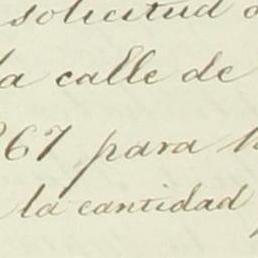 solicitud
la calle de
267 para
la cantidad